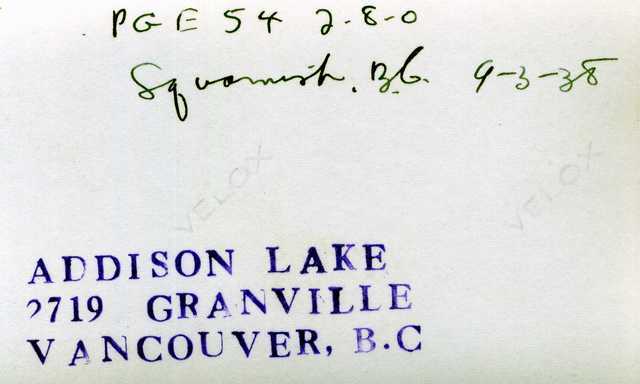 PGE 54 2-8-0
Squamish, B.C. 9-3-38
VELOX VELOX
ADDISON LAKE
2719 GRANVILLE
VANCOUVER, B.C